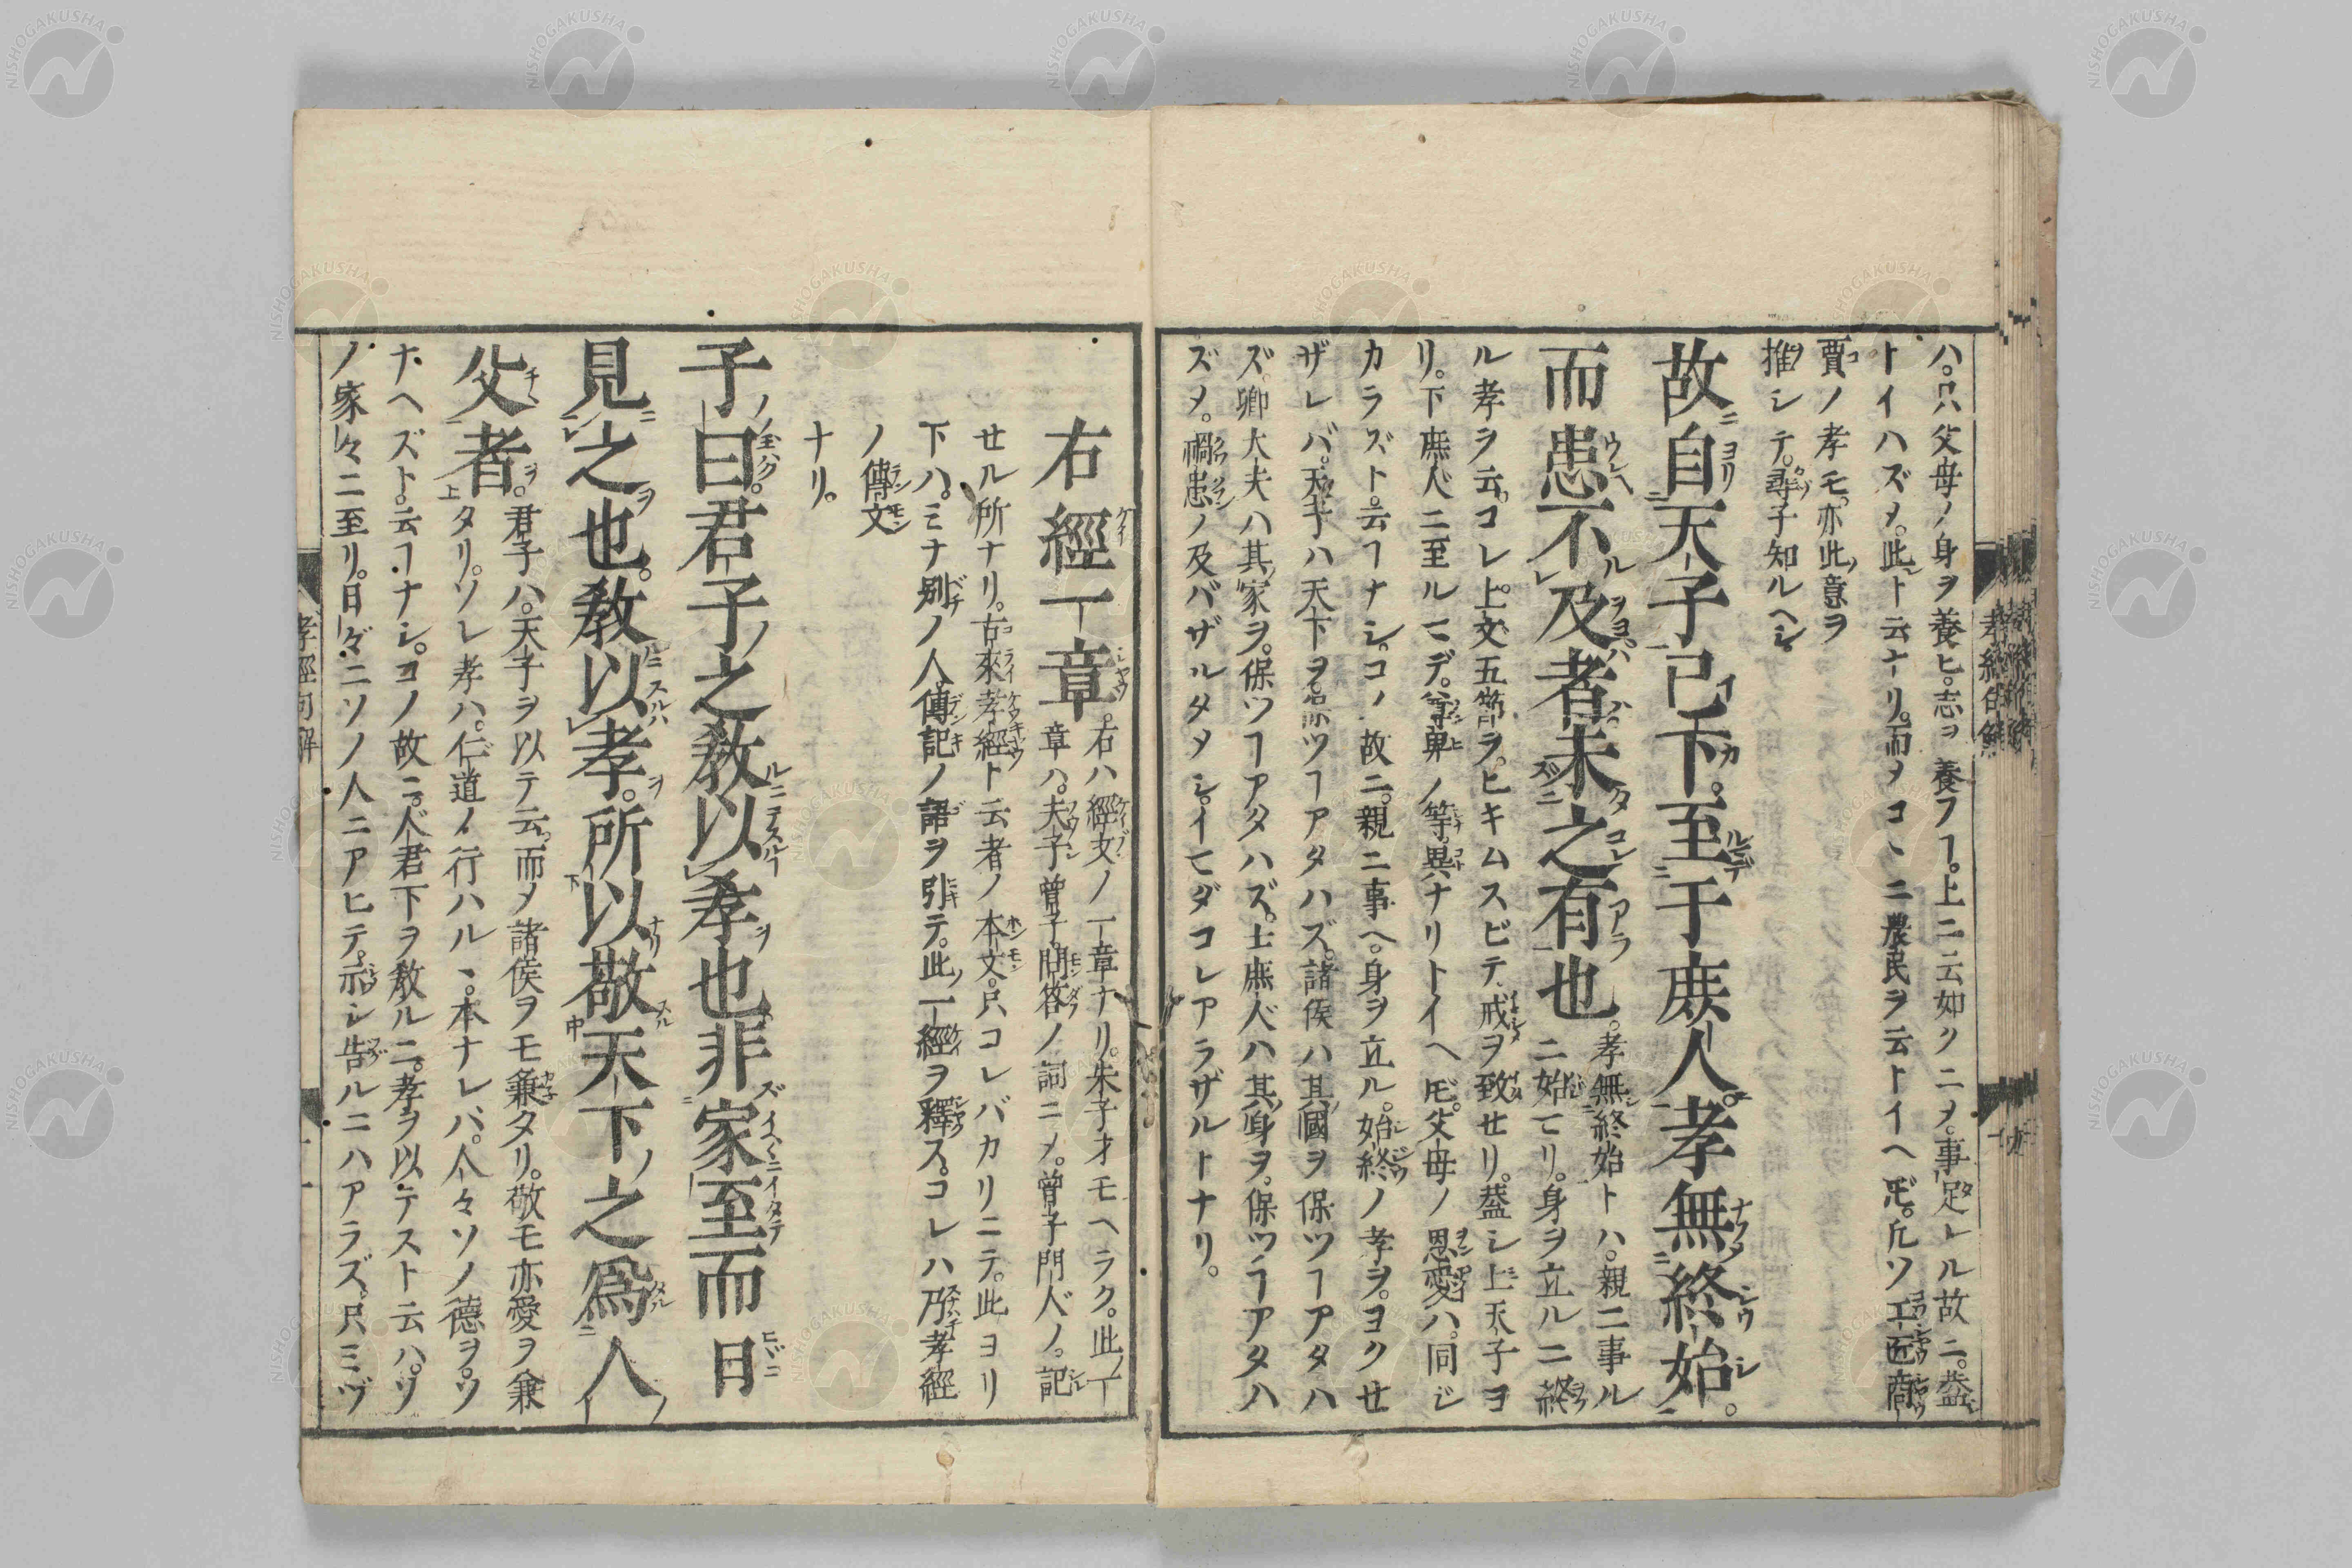 ハ。只父母ノ身ヲ養ヒ。志ヲ養フヿ。上ニ云如クニメ。事足レル故ニ。蓋
トイハズメ。此ト云ナリ。而メコヽニ農民ヲ云トイヘ𪜈。凡ソ工匠商
賈ノ孝モ。亦此意ヲ
推シテ。尋子知ルヘシ
故自天子已下。至于庶人。孝無終始。
而患不及者。未之有也。孝無終始トハ。親ニ事ル
ニ始テリ。身ヲ立ルニ終
ル孝ヲ云。コレ上文五章ヲ。ヒキムスビテ。戒ヲ致セリ。蓋シ上天子ヨ
リ。下庶人ニ至ルマデ。尊卑ノ等。異ナリトイヘ𪜈。父母ノ恩愛ハ。同シ
カラズト。云ヿナシ。コノ故ニ。親ニ事ヘ。身ヲ立ル。始終ノ孝ヲ。ヨクせ
ザレバ。天子ハ天下ヲ。保ツヿアタハズ。諸侯ハ其國ヲ保ツヿアタハ
ズ。卿大夫ハ其家ヲ。保ツヿアタハズ。士庶人ハ其身ヲ。保ツヿアタハ
ズメ。禍患ノ及バザルタメシ。イマダコレアラザルトナリ。
右經一章。右ハ經文ノ一章ナリ。朱子オモヘラク。此ノ一
章ハ。夫子曽子。問答ノ詞ニメ。曽子門人ノ。記
せル所ナリ。古來孝經ト云者ノ本文。只コレバカリニテ。此ヨリ
下ハ。ミナ別ノ人。傳記ノ語ヲ引テ。此一經ヲ釋ス。コレハ乃孝經
ノ傳文
ナリ。
子曰。君子之教以孝也。非家至而日
見之也。教以孝。所以敬天下之爲人
父者。君子ハ。天子ヲ以テ云。而メ諸侯ヲモ兼タリ。敬モ亦愛ヲ兼
タリ。ソレ孝ハ。仁道ノ行ハルヽ。本ナレバ。人々ソノ德ヲ。ソ
ナヘズト。云ヿナシ。コノ故ニ。人君下ヲ教ルニ。孝ヲ以テスト云ハ。ソ
ノ家々ニ至リ。日ゴニソノ人ニアヒテ。示シ告ルニハアラズ。只ミヅ
孝經句解
NISHOGAKUSHA